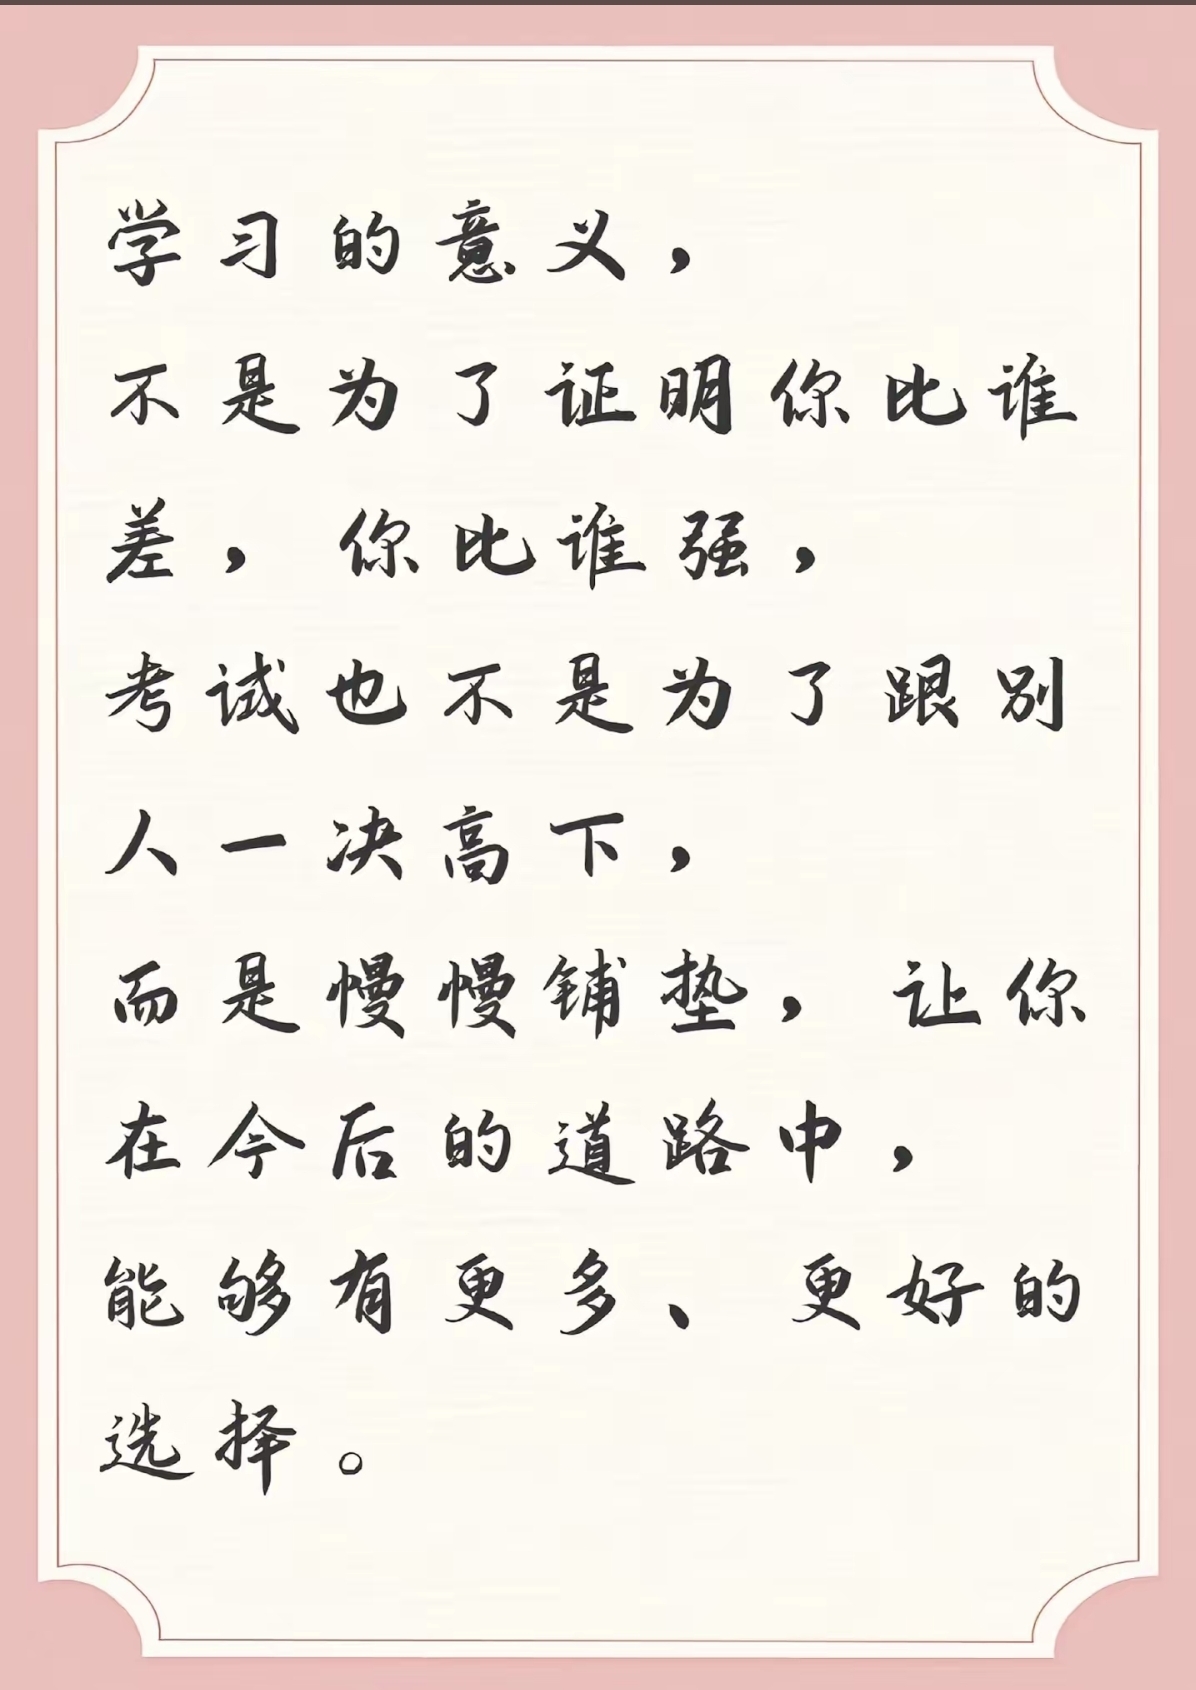 学习的意义，
不是为了证明你比谁
差，你比谁强，
考试也不是为了跟别
人一决高下，
而是慢慢铺垫，让你
在今后的道路中，
能够有更多、更好的
选择。